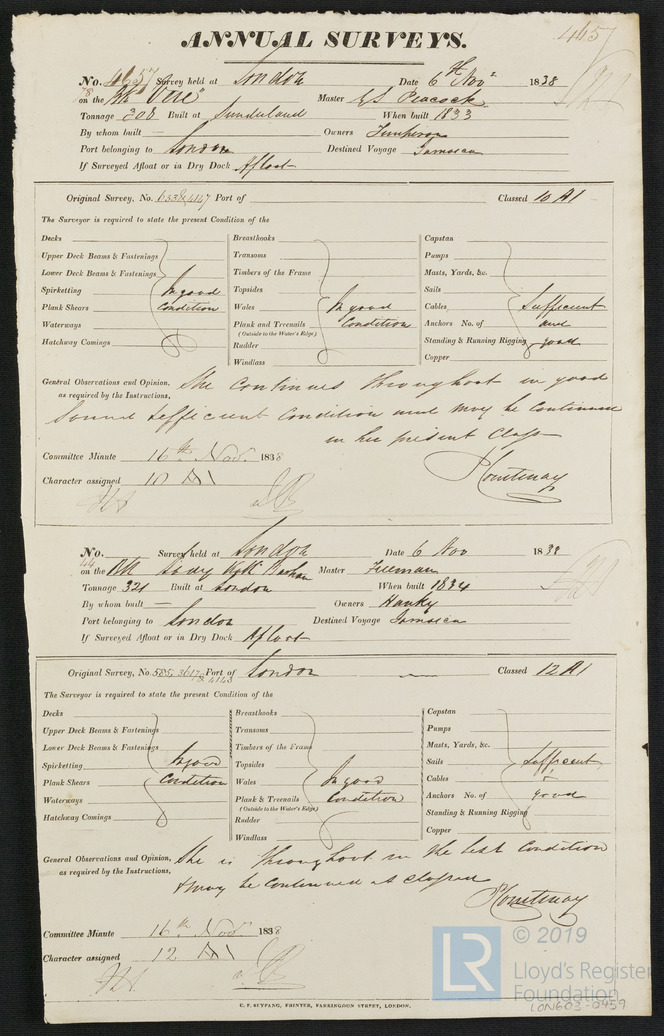 ANNUAL SURVEYS.
457
No. 4657 Survey held at London Date 6th Novr 1838
78
on the Bk "Vere" Master Peacock
Tonnage 308 Built at Sunderland When built 1833
By whom built — Owners
Port belonging to London Destined Voyage Jamaica
If Surveyed Afloat or in Dry Dock Afloat
Original Survey, No. 4147 Port of Classed 10 A1
The Surveyor is required to state the present Condition of the
Decks Breasthooks Capstan
Upper Deck Beams & Fastenings Transoms Pumps
Lower Deck Beams & Fastenings Timbers of the Frame Masts, Yards, &c.
Spirketting In good Topsides Sails
Plank Shears Condition Wales In good Cables Sufficient
Waterways Plank and Treenails Condition Anchors No. of and
(Outside to the Water's Edge)
Hatchway Comings Rudder Standing & Running Rigging good
Windlass Copper
General Observations and Opinion, She continues throughout in good
as required by the Instructions,
sound sufficient condition and may be continued
in her present Class
Courtenay
Committee Minute 16th Novr. 1838
Character assigned 10 A1
No. Survey held at London Date 6 Nov 1838
44
on the Bk Lady Master Freeman
Tonnage 321 Built at London When built 1834
By whom built — Owners Hanky
Port belonging to London Destined Voyage Jamaica
If Surveyed Afloat or in Dry Dock Afloat
Original Survey, No. 585, 3617 & 4143 Port of London Classed 12 A1
The Surveyor is required to state the present Condition of the
Decks Breasthooks Capstan
Upper Deck Beams & Fastenings Transoms Pumps
Lower Deck Beams & Fastenings Timbers of the Frame Masts, Yards, &c.
Spirketting In good Topsides Sails Sufficient
Plank Shears Condition Wales In good Cables &
Waterways Plank & Treenails Condition Anchors No. of good
(Outside to the Water's Edge)
Hatchway Comings Rudder Standing & Running Rigging
Windlass Copper
General Observations and Opinion, She is throughout in the best Condition
as required by the Instructions,
& may be continued as classed
Courtenay
Committee Minute 16th Novr. 1838
Character assigned 12 A1
C. F. SEYFANG, PRINTER, FARRINGDON STREET, LONDON.
LR © 2019
Lloyd's Register
Foundation
LON603-0459